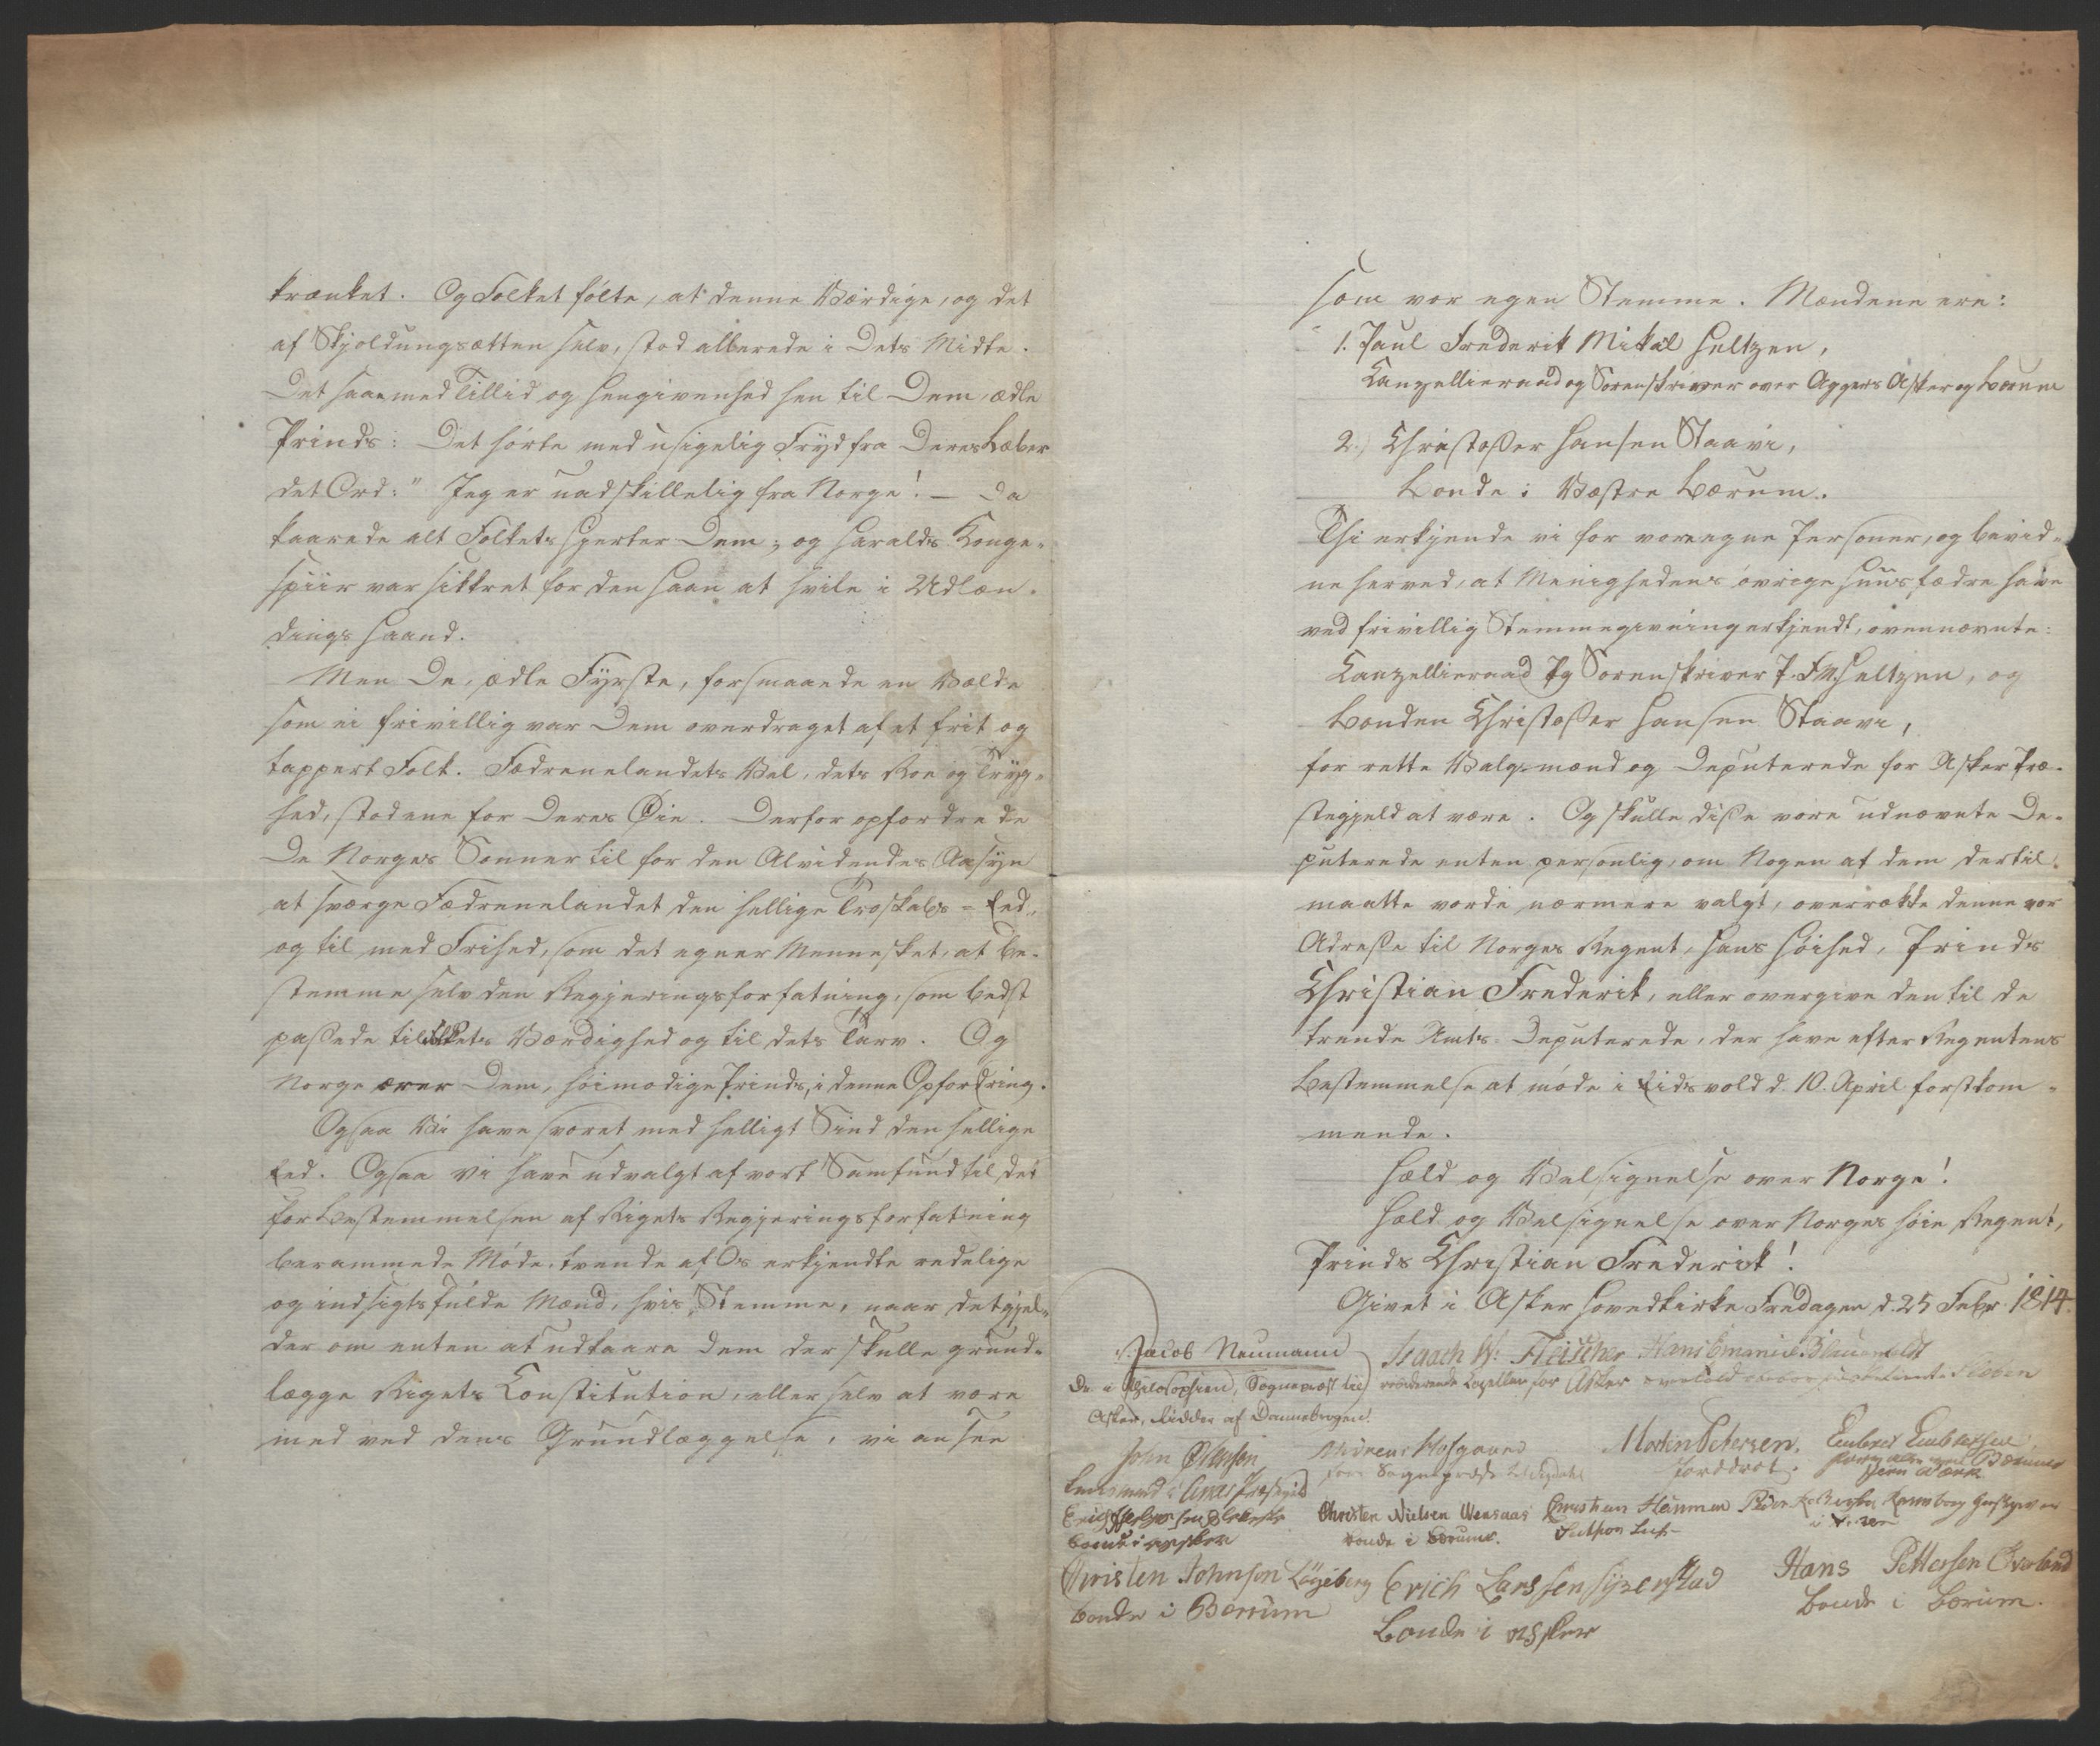 krænket. Og Folket følte, at denne Værdige, og det
af Skjoldungsætten selv, stod allerede i Dets Midte.
Det saae med Tillid og Hengivenhed hen til Dem, ædle
Prinds: Det hørte med usigelig Fryd fra Deres Læber
det Ord: "Jeg er uadskillelig fra Norge! – Da
kaarede alt Folkets Hjerter Dem; og Haralds Konge-
spiir var sikkret for den Haan at hvile i Udlæn-
dings Haand.
Men De, ædle Fyrste, forsmaaede en Vælde
som ei frivillig var Dem overdraget af et frit og
tappert Folk. Fædrenelandets Vel, dets Roe og Tryg-
hed, stod ene for Deres Øie. Derfor opfordrede
De Norges Sønner til for den Alvidendes Aasyn
at sværge Fædrenelandet den hellige Troskabs-Eed,
og til med Frihed, som det egner Mennesket, at be-
stemme selv den Regjeringsforfatning, som bedst
passede til Folkets Værdighed og til dets Tarv. Og
Norge ærer Dem, høimodige Prinds, i denne Opfordring.
Ogsaa Vi have svoret med helligt Sind den hellige
Eed. Ogsaa Vi have udvalgt af vort Samfund til det
for Bestemmelsen af Rigets Regjeringsforfatning
berammede Møde, tvende af Os erkjendte redelige
og indsigtsfulde Mænd, hvis Stemme, naar det gjel-
der om enten at udkaare dem der skulle grund-
lægge Rigets Constitution, eller selv at være
med ved dens Grundlæggelse, vi ansee
som vor egen Stemme. Mændene ere:
1. Paul Frederik Mikal Heltzen,
Canzellieraad og Sorenskriver over Aggers Asker og Bærum
2.) Christoffer Hansen Staavi,
Bonde i Vestre Bærum.
Thi erkjende vi for vore egne Personer, og bevid-
ne herved, at Menighedens øvrige Huusfædre have
ved frivillig Stemmegivning erkjendt, ovennævnte:
Canzellieraad og Sorenskriver P. F. M. Heltzen, og
Bonden Christoffer Hansen Staavi,
for rette Valgmænd og Deputerede for Asker Præ-
stegjeld at være. Og skulle disse vore udnævnte De-
puterede enten personlig, om Nogen af dem dertil
maatte vorde nærmere valgt, overrække denne vor
Adresse til Norges Regent, Hans Høihed, Prinds
Christian Frederik, eller overgive den til de
trende Amts-Deputerede, der have efter Regentens
Bestemmelse at møde i Eidsvold d. 10. April førstkom-
mende.
Held og Velsignelse over Norge!
Held og Velsignelse over Norges høie Regent,
Prinds Christian Frederik!
Givet i Asker Hovedkirke Fredagen d. 25 Febr. 1814.
Jacob Neumann Isaach W: Fleischer Hans Emanuel
Dr. i Philosophien, Sognepræst til residerende Capellan for Asker
Asker, Ridder af Dannebrogen.
John Olensen Andreas Hofgaard Martin Petersen. Embret Embretsen
Lensmand i Præstegield Sognepræst Jorddrot. Bærums
Jern Værk
Christen Nielsen Wensaas Christian Hamman
bonde i Asker Bonde i Bærum.
Christen Johnson Løgeberg Erich Larssen Syverstad Hans Pettersen Overland
bonde i Berrum Bonde i Asker Bonde i Bærum.